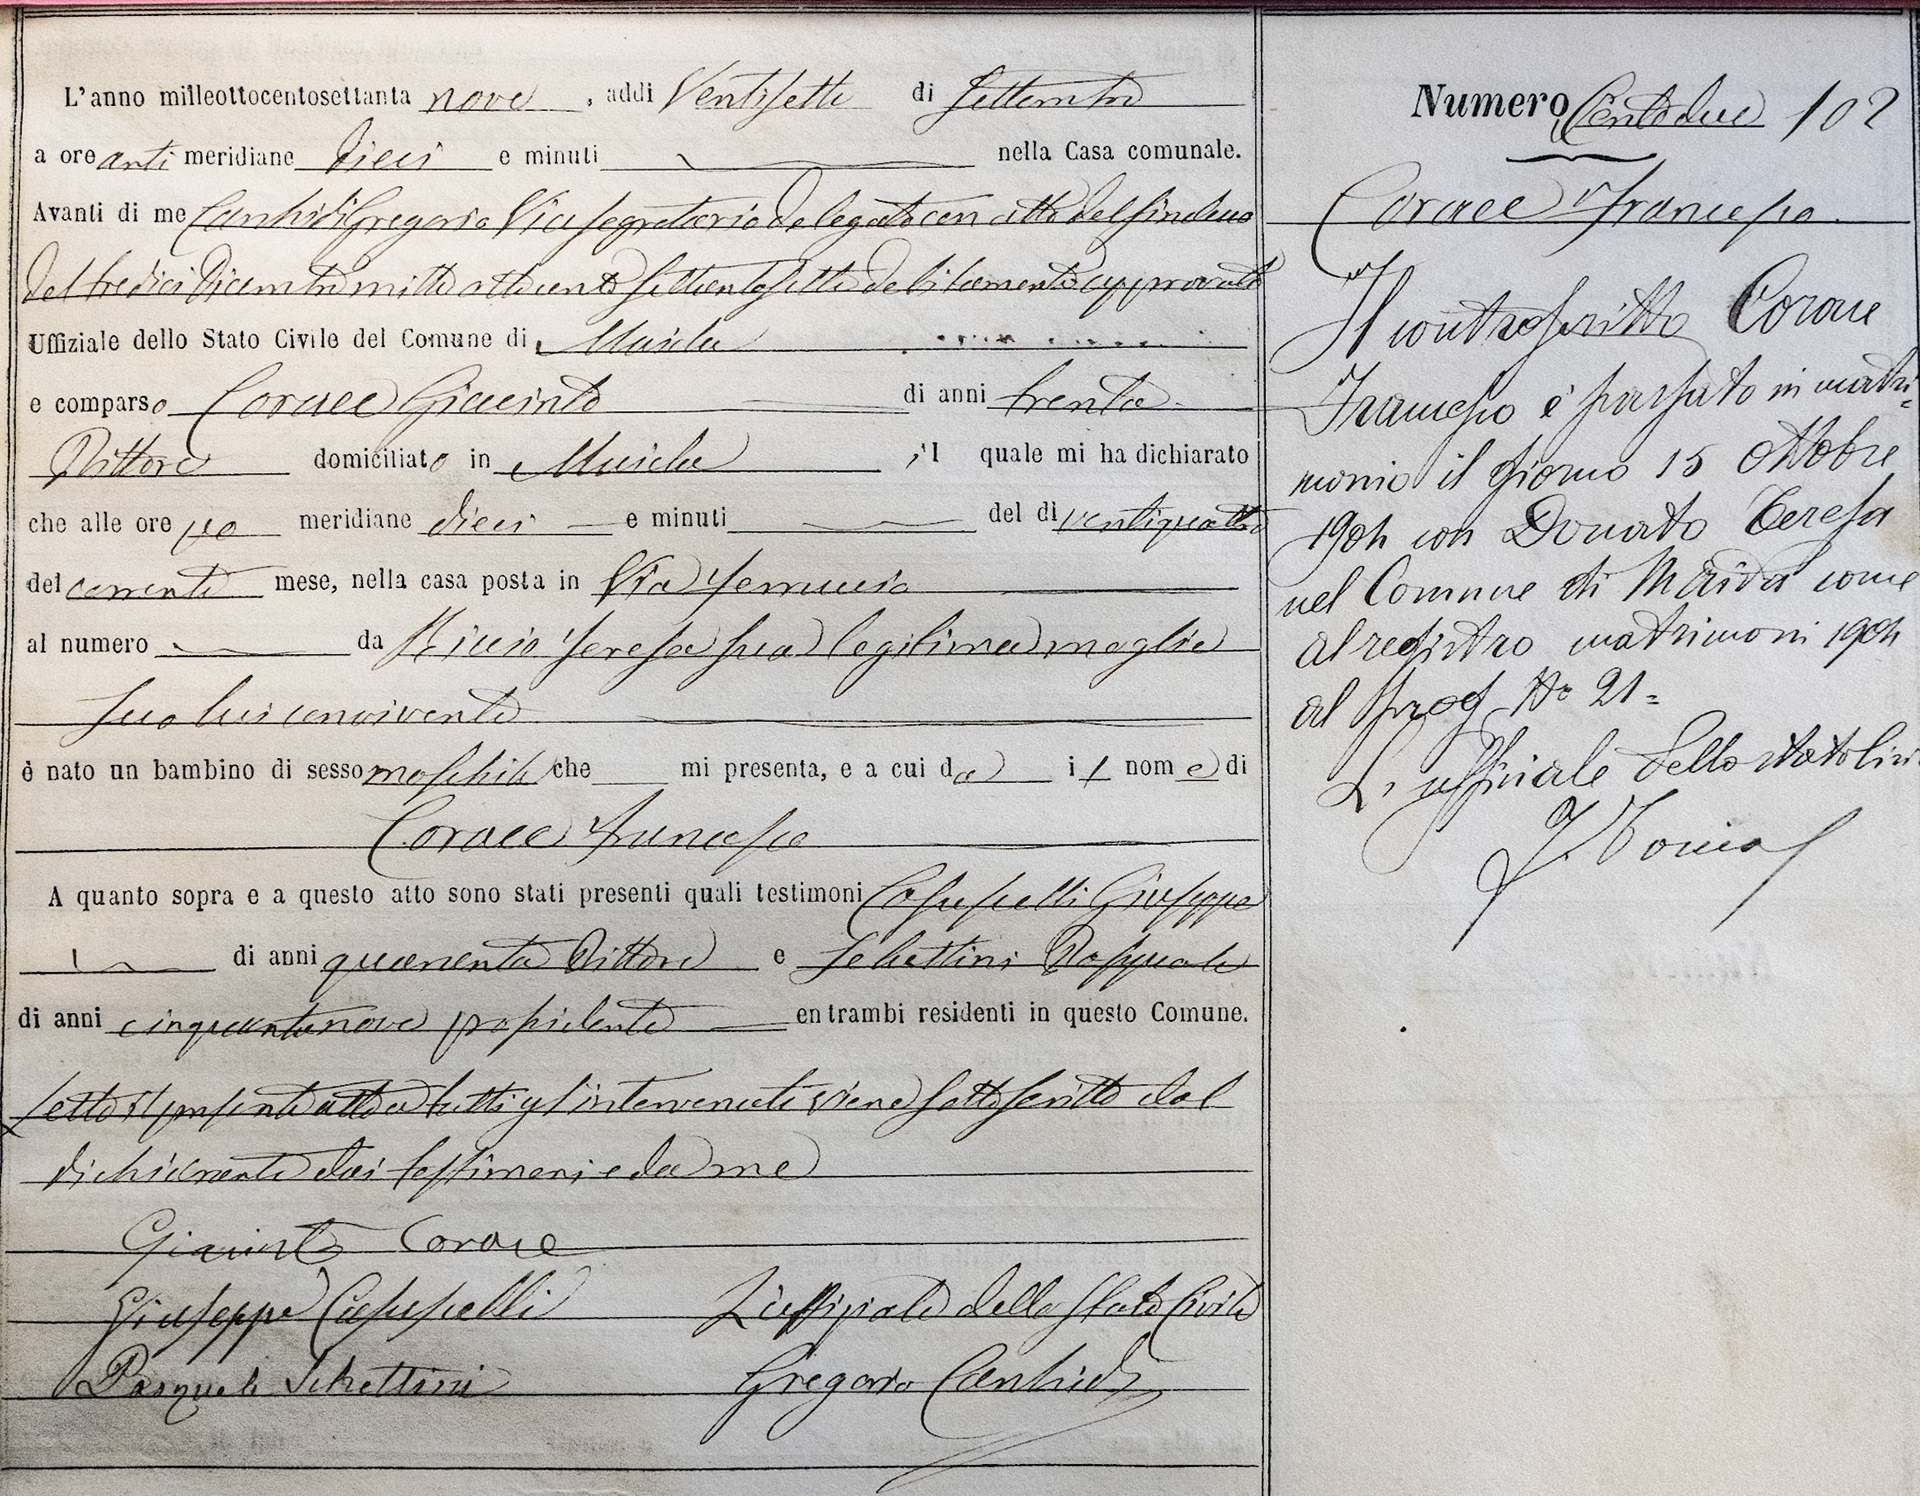 L'anno milleottocentosettanta nove, addi Ventisette di Settembre
a ore anti meridiane dieci e minuti nella Casa comunale.
Avanti di me Gregorio Vice segretario delegato con atto del sindaco
del tredici Dicembre mille ottocento settantasette debitamente approvato
Uffiziale dello Stato Civile del Comune di Maida
e comparso Corace Giacinto di anni trenta
Pittore domiciliato in Maida, il quale mi ha dichiarato
che alle ore po meridiane dieci e minuti del di ventiquattro
del corrente mese, nella casa posta in Via Ferruccio
al numero da Teresa sua legittima moglie
seco lui convivente
è nato un bambino di sesso maschile che mi presenta, e a cui da il nome di
Corace Francesco
A quanto sopra e a questo atto sono stati presenti quali testimoni Giuseppe
di anni quaranta Pittore e Schettini Pasquale
di anni cinquantanove possidente entrambi residenti in questo Comune.
Letto il presente atto a tutti gl'intervenuti viene sottoscritto dal
dichiarante dai testimoni e da me
Giacinto Corace
Giuseppe L'uffiziale dello Stato Civile
Pasquale Schettini Gregorio
Numero Centodue 102
Corace Francesco.
Il controscritto Corace
Francesco è passato in matri=
monio il giorno 15 Ottobre
1904 con Donato Teresa
nel Comune di Maida come
al registro matrimoni 1904
al prog No 21=
L'ufficiale dello stato civi